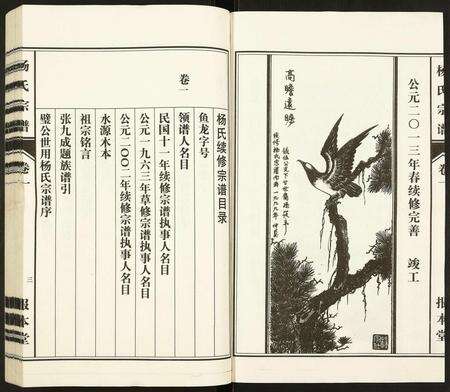 杨氏宗谱
卷一
报本堂
公元二0一三年春续修完善 竣工
高瞻远瞩
杨氏续修宗谱目录
卷一
鱼龙字号
领谱人名目
民国十一年续修宗谱执事人名目
公元一九六三年草修宗谱执事人名目
公元二00二年续修宗谱执事人名目
水源木本
祖宗铭言
张九成题族谱引
璧公世用杨氏宗谱序
杨氏宗谱
卷一
三
报本堂